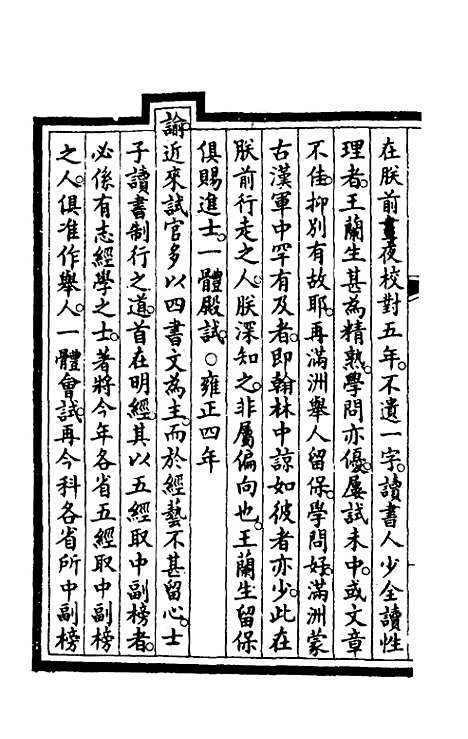 在朕前晝夜校對五年。不遺一字。讀書人少全讀性
理者。王蘭生甚為精熟。學問亦優。屢試未中。或文章
不佳。抑別有故耶。再滿洲舉人留保。學問好。滿洲蒙
古漢軍中罕有及者。即翰林中諒如彼者亦少。此在
朕前行走之人。朕深知之。非屬偏向也。王蘭生留保
俱賜進士。一體殿試。○雍正四年
諭近來試官多以四書文為主。而於經藝不甚留心。士
子讀書制行之道。首在明經。其以五經取中副榜者。
必係有志經學之士。著將今年各省五經取中副榜
之人。俱准作舉人。一體會試。再今科各省所中副榜